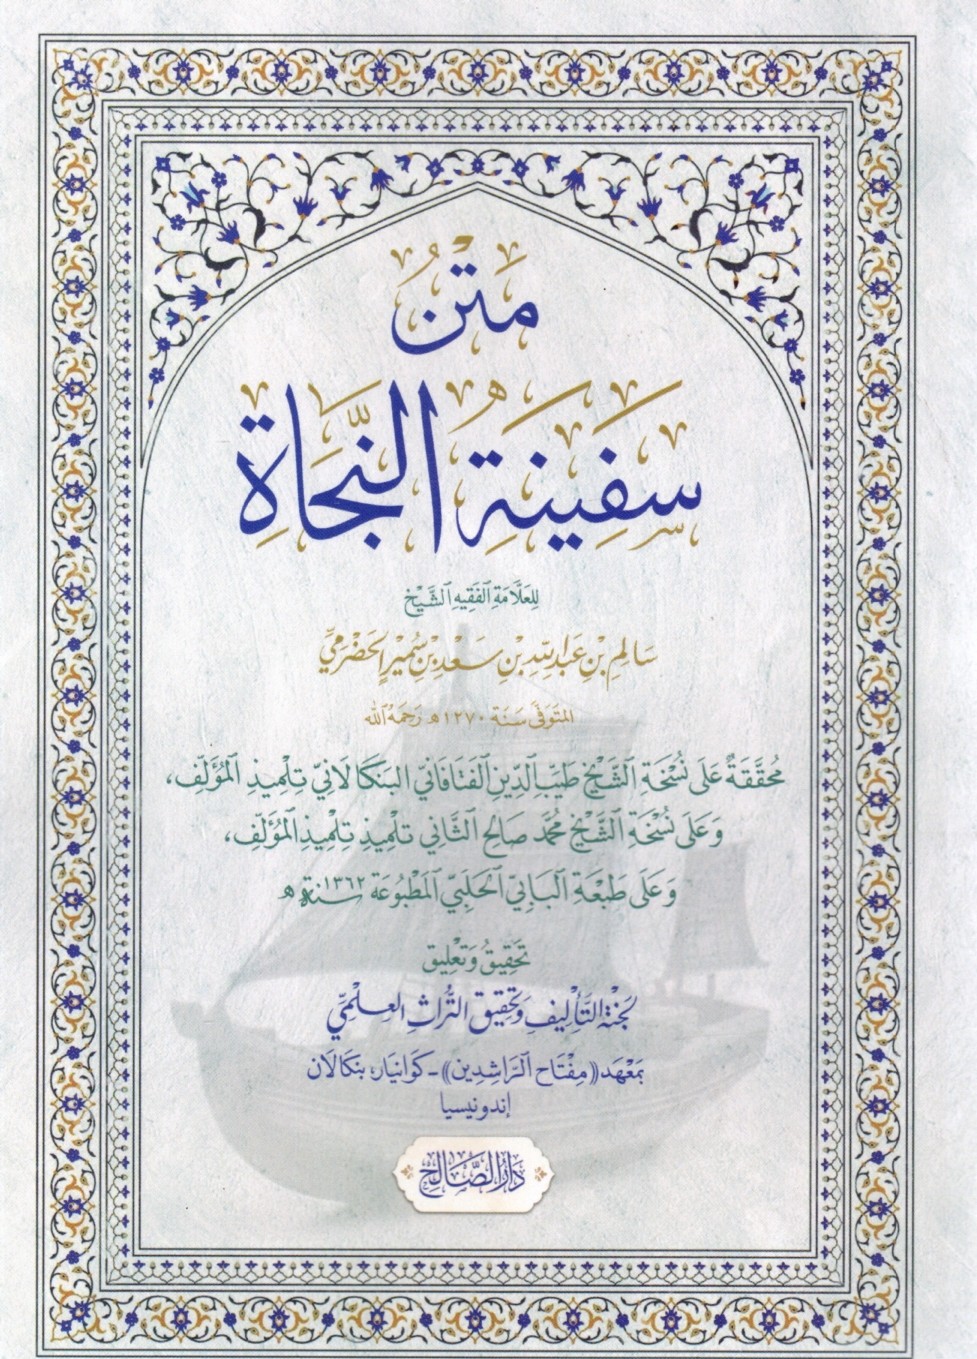 مَتْنُ
سَفِينَةِ النَّجَاةِ
لِلعَلَّامَةِ الفَقِيهِ الشَّيْخِ
سَالِمِ بْنِ عَبْدِ اللهِ بْنِ سَعْدِ بْنِ سُمَيْرٍ الحَضْرَمِيِّ
المُتَوَفَّى سَنَةَ ١٢٧٠هـ رَحِمَهُ الله
مُحَقَّقَةٌ عَلَى نُسْخَةِ الشَّيْخِ طَيِّبِ الدِّينِ الفَتَافَانِي البَنكَالَانِيِّ تِلْمِيذِ المُؤَلِّفِ،
وَعَلَى نُسْخَةِ الشَّيْخِ مُحَمَّد صَالِح الثَّانِي تِلْمِيذِ تِلْمِيذِ المُؤَلِّفِ،
وَعَلَى طَبْعَةِ البَابِيِّ الحَلَبِيِّ المَطْبُوعَة سنة ١٣٦٢هـ
تَحْقِيقُ وَتَعْلِيق
لَجْنَة التَّأْلِيفِ وَتَحْقِيقِ التُّرَاثِ العِلْمِيِّ
بِمَعْهَد «مِفْتَاح الرَّاشِدِين» - كوَانيَار، بنكَالَان
إندونيسيا
دَارُ الصَّالِح